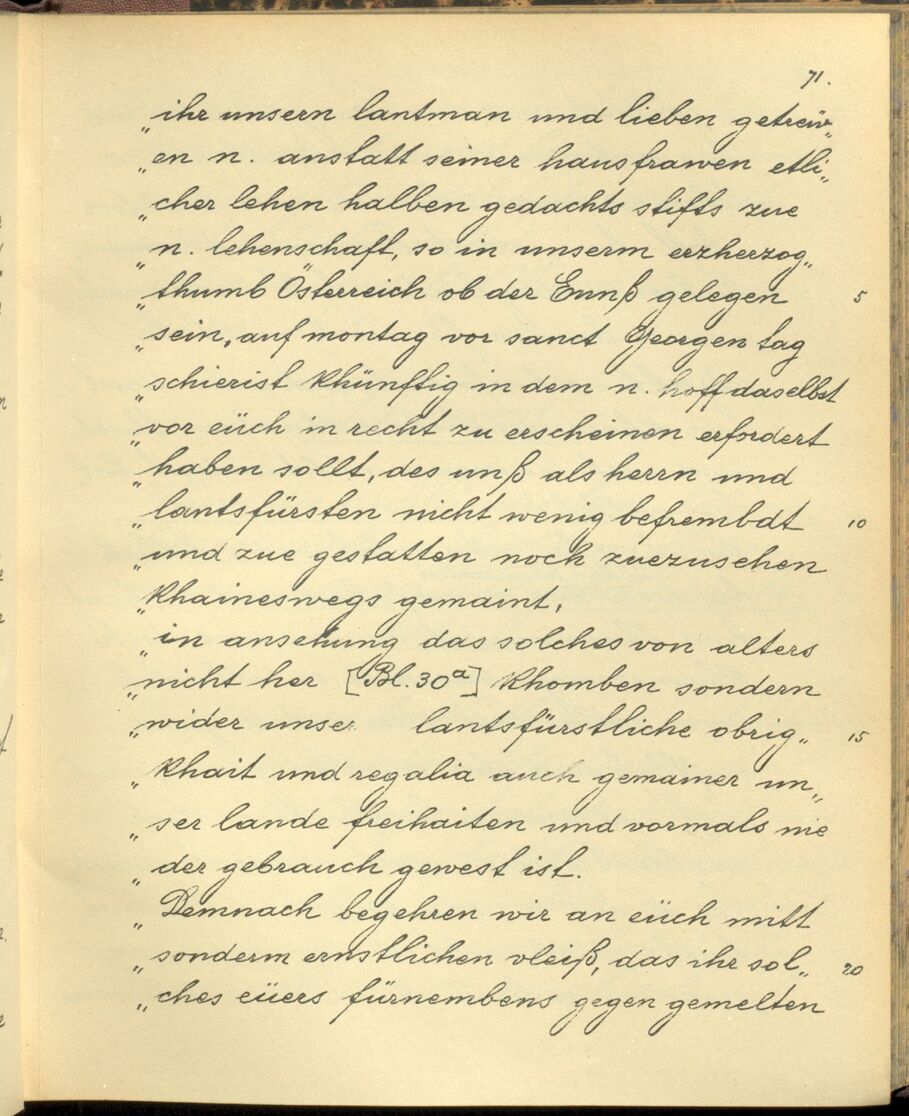 71.
„ihr unsern lantman und lieben getreüw„
„en n. anstatt seiner hausfrawen etli„
„cher lehen halben gedachts stifts zue
„n. lehenschaft, so in unserm erzherzog„
„thumb Österreich ob der Ennß gelegen 5
„sein, auf montag vor sanct Georgen tag
„schierist khünftig in dem n. hoff daselbst
„vor eüch in recht zu erscheinen erfordert
„haben sollt, des unß als herrn und
„lantsfürsten nicht wenig befrembdt 10
„und zue gestatten noch zuezusehen
„khaineswegs gemaint,
„in ansehung das solches von alters
„nicht her [Bl. 30a] khomben sondern
„wider unser lantsfürstliche obrig„ 15
„khait und regalia auch gemainer un„
„ser lande freihaiten und vormals nie
„der gebrauch gewest ist.
„Demnach begehren wir an eüch mitt
„sonderm ernstlichen vleiß, das ihr sol„ 20
„ches eüers fürnembens gegen gemelten